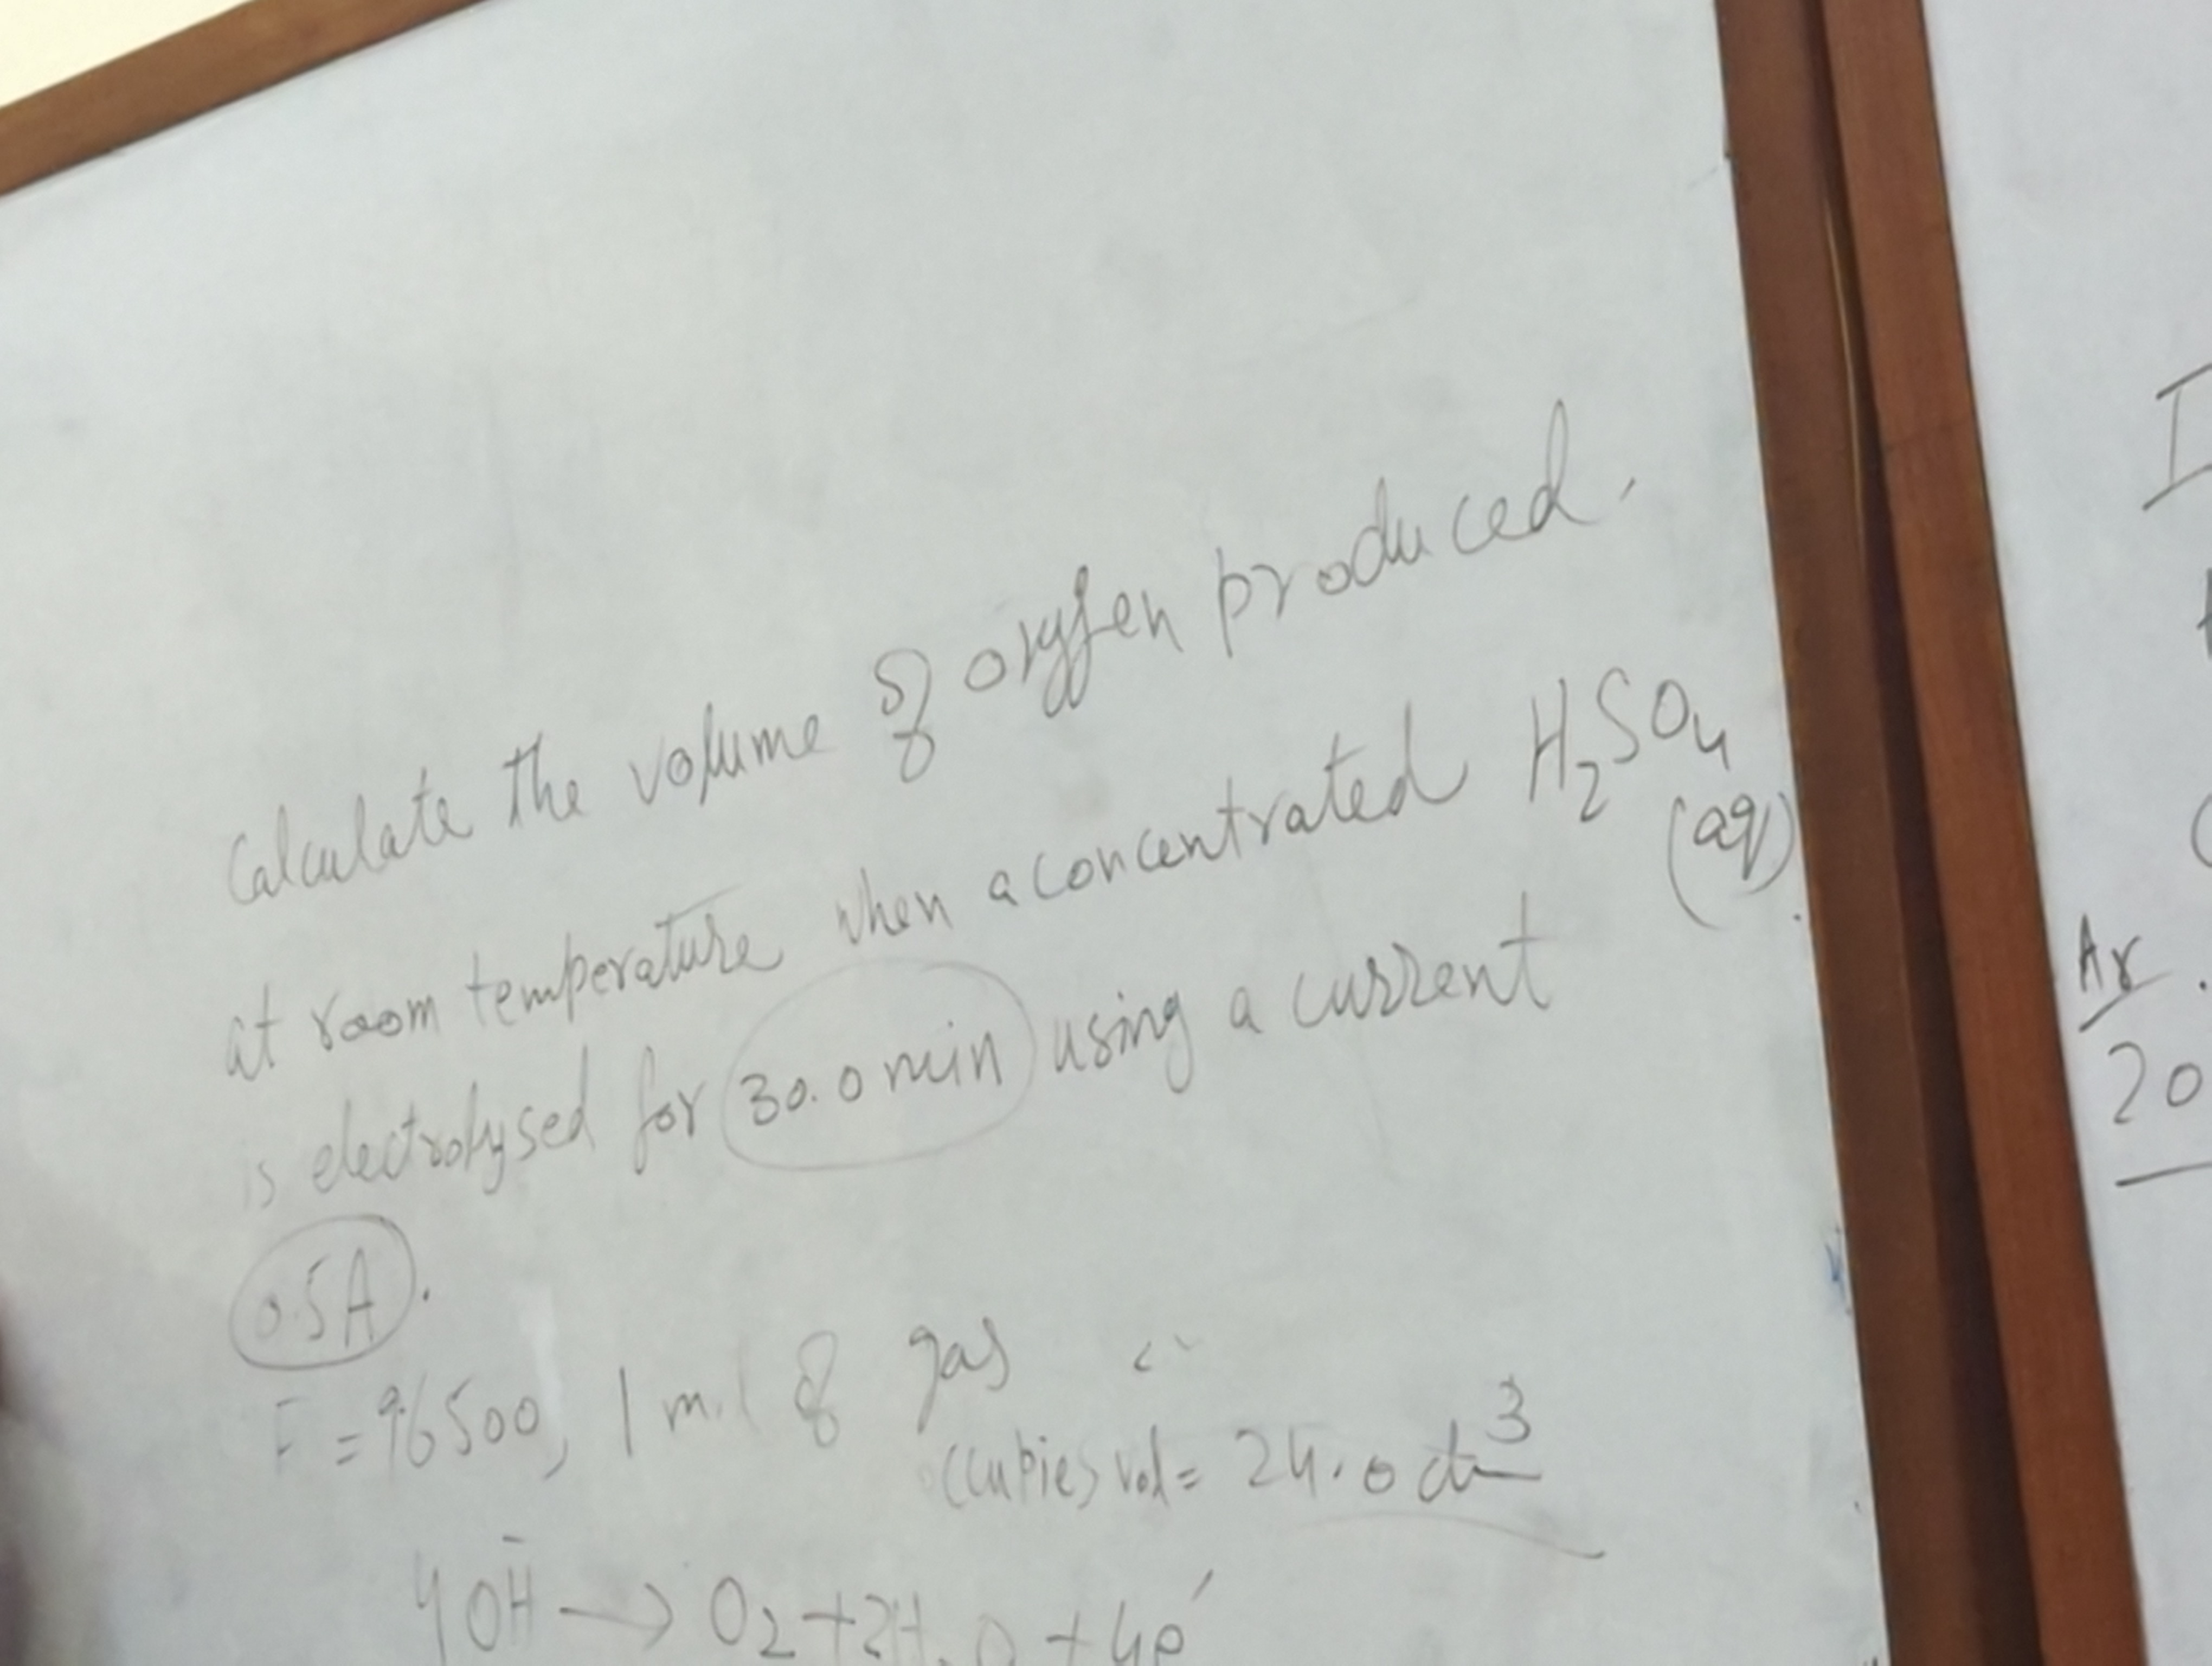 Calculate the volume of oxygen produced.
at room temperature when a concentrated H₂SO₄
(aq).
is electrolysed for 30.0 min using a current
0.5A.
F = 96500, 1 mol of gas
occupies vol = 24.0 dm³
4OH⁻ → O₂ + 2H₂O + 4e⁻
I
Ar.
20